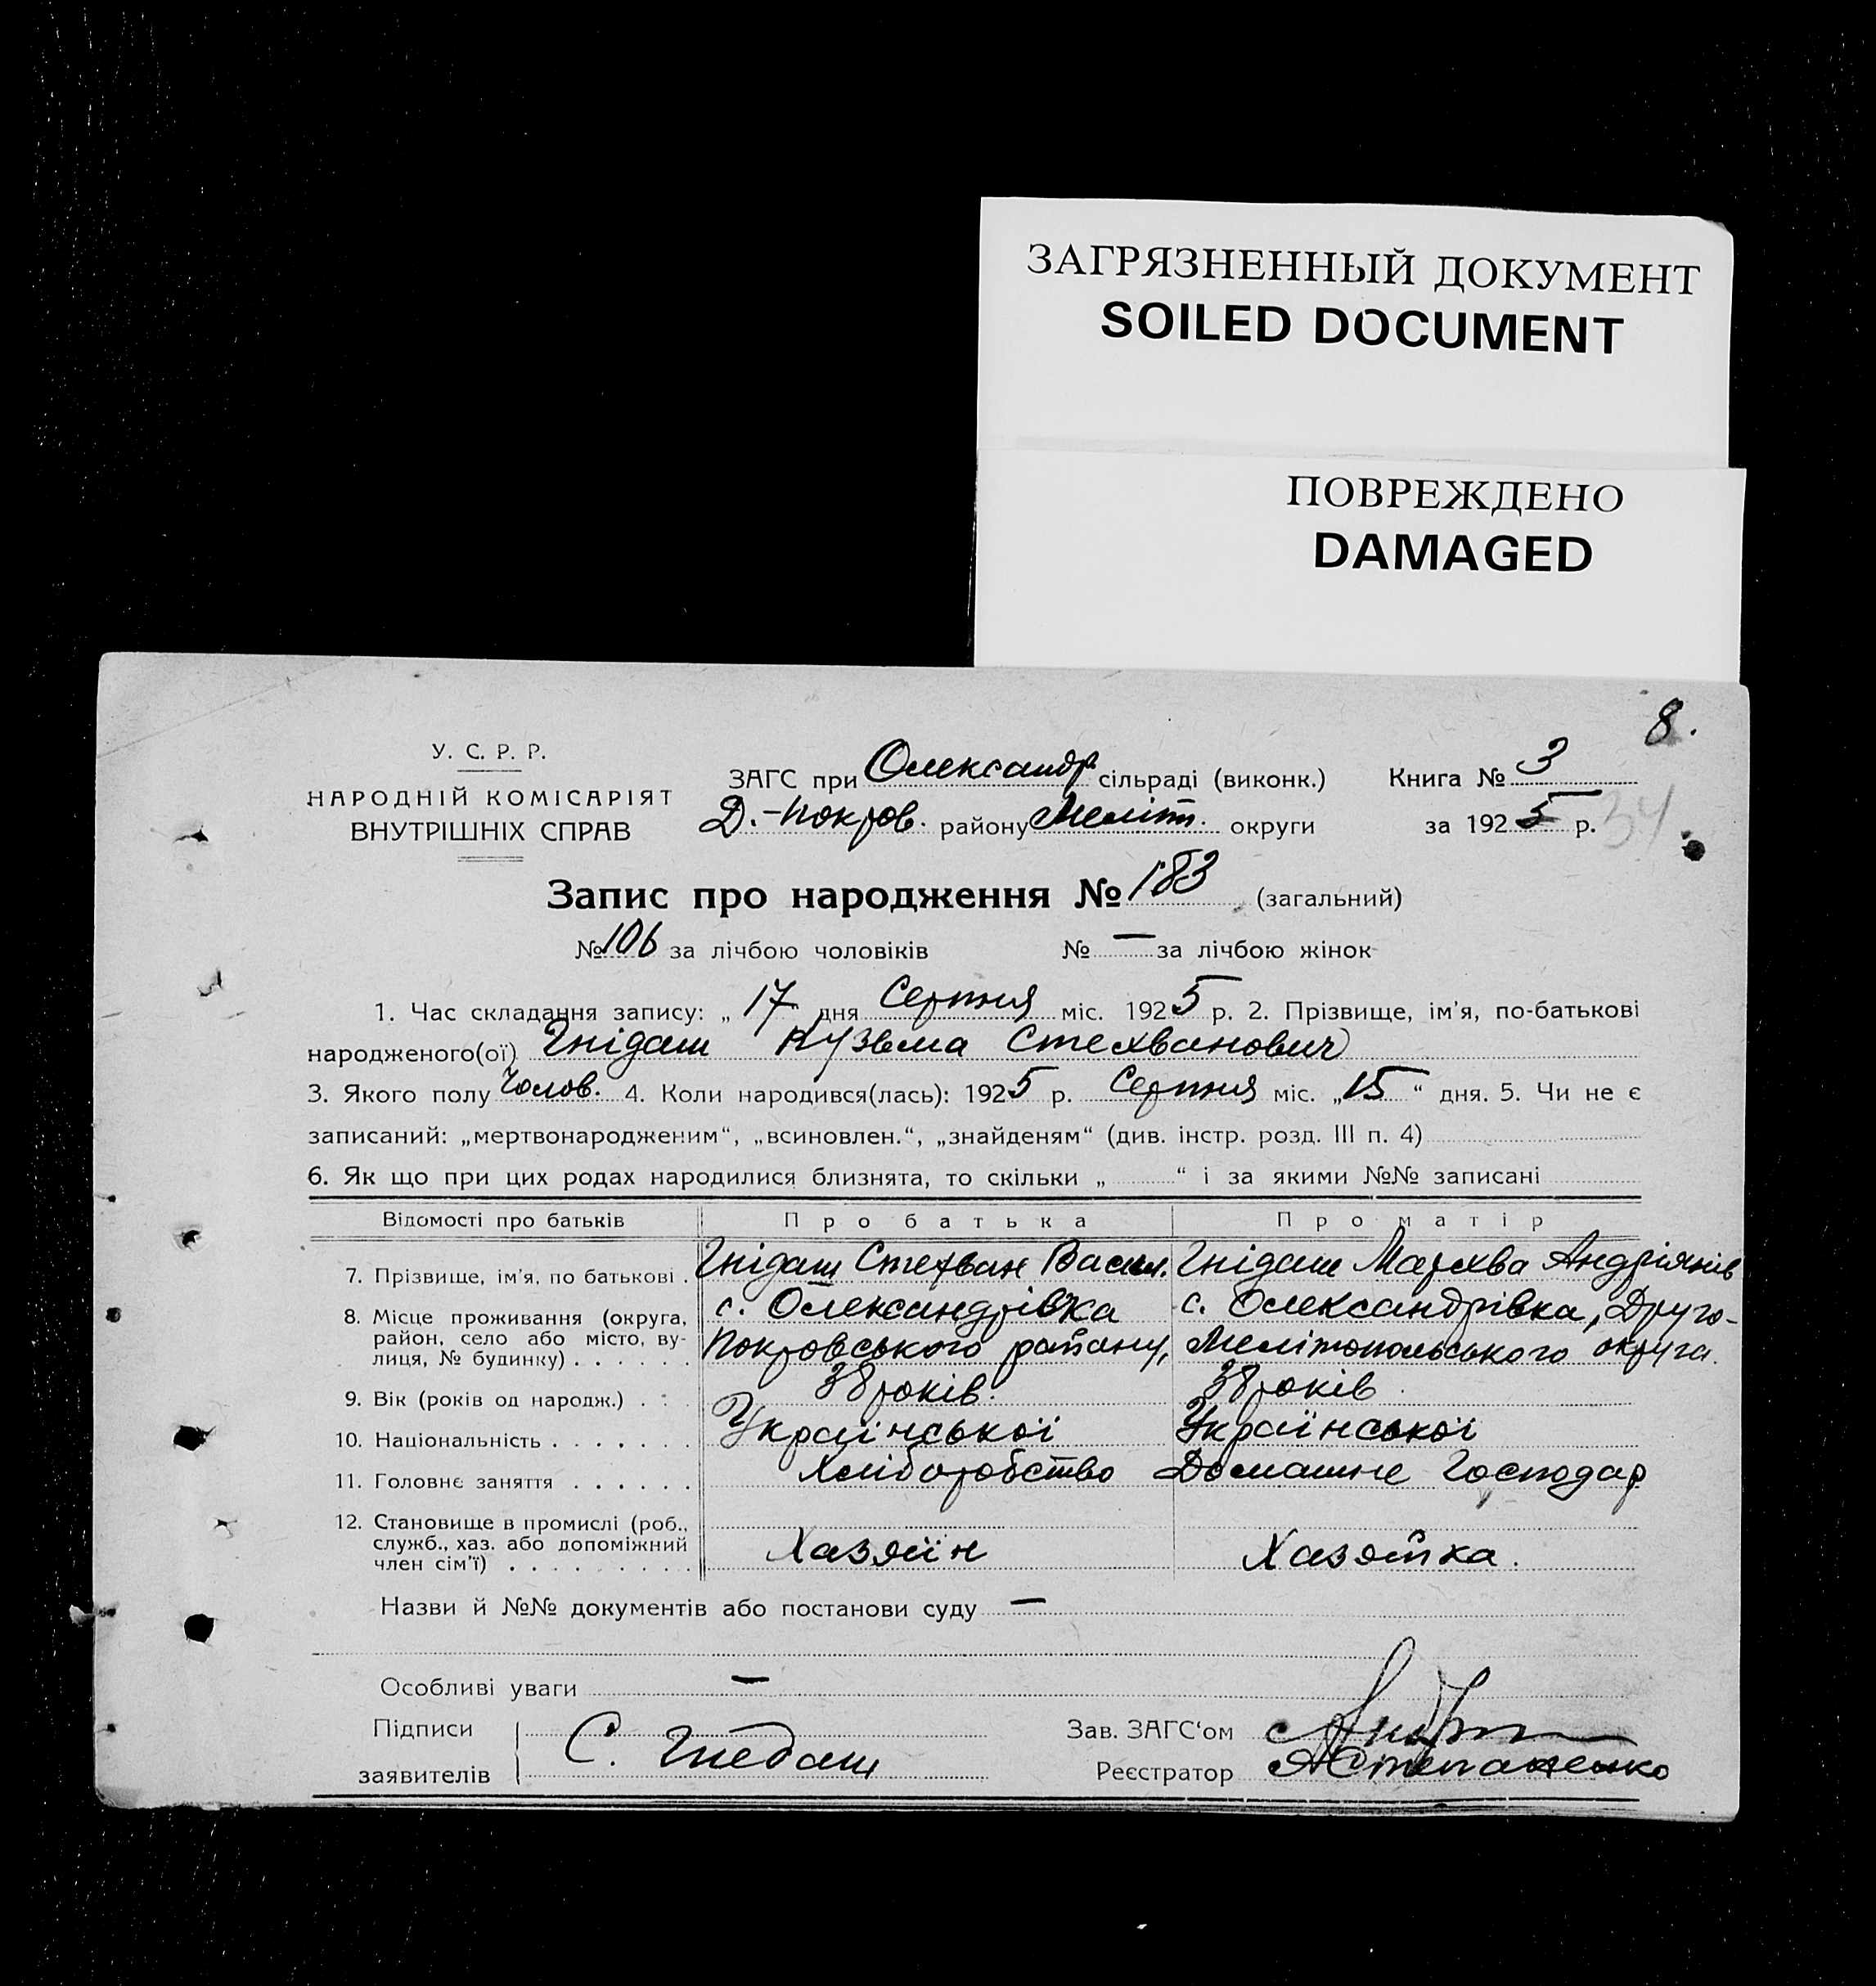 ЗАГРЯЗНЕННЫЙ ДОКУМЕНТ
SOILED DOCUMENT
ПОВРЕЖДЕНО
DAMAGED
8.
У. С. Р. Р.
НАРОДНІЙ КОМІСАРІЯТ
ВНУТРІШНІХ СПРАВ
ЗАГС при Олександр. сільраді (виконк.) Книга № 3
Д.-Покров. району Меліт. округи за 1925 р. 34
Запис про народження № 183 (загальний)
№ 106 за лічбою чоловіків № — за лічбою жінок
1. Час складання запису: „ 17 дня Серпня міс. 1925 р. 2. Прізвище, ім'я, по-батькові
народженого(ої) Гнідаш Кузьма Стехванович
3. Якого полу Чолов. 4. Коли народився(лась): 1925 р. Серпня міс. „15“ дня. 5. Чи не є
записаний: „мертвонародженим“, „всиновлен.“, „знайденям“ (див. інстр. розд. III п. 4)
6. Як що при цих родах народилися близнята, то скільки „ “ і за якими №№ записані
Відомості про батьків Про батька Про матір
7. Прізвище, ім'я, по батькові . Гнідаш Стехван Васил. Гнідаш Мархва Андріянів
8. Місце проживання (округа, с. Олександрівка с. Олександрівка, Друго-
район, село або місто, ву-
лиця, № будинку) . . . . . . Покровського району, Мелітопольського округа.
9. Вік (років од народж.) . : 38 років. 38 років.
10. Національність . . . . . . . Української Української
11. Головнє заняття . . . . . . Хліборобство Домашнє Господар
12. Становище в промислі (роб.,
служб., хаз. або допоміжний
член сім'ї) . . . . . . . . . Хазяїн Хазяйка.
Назви й №№ документів або постанови суду —
Особливі уваги —
Підписи
заявителів С. Гнедаш
Зав. ЗАГС'ом
Реєстратор АСтепаненко